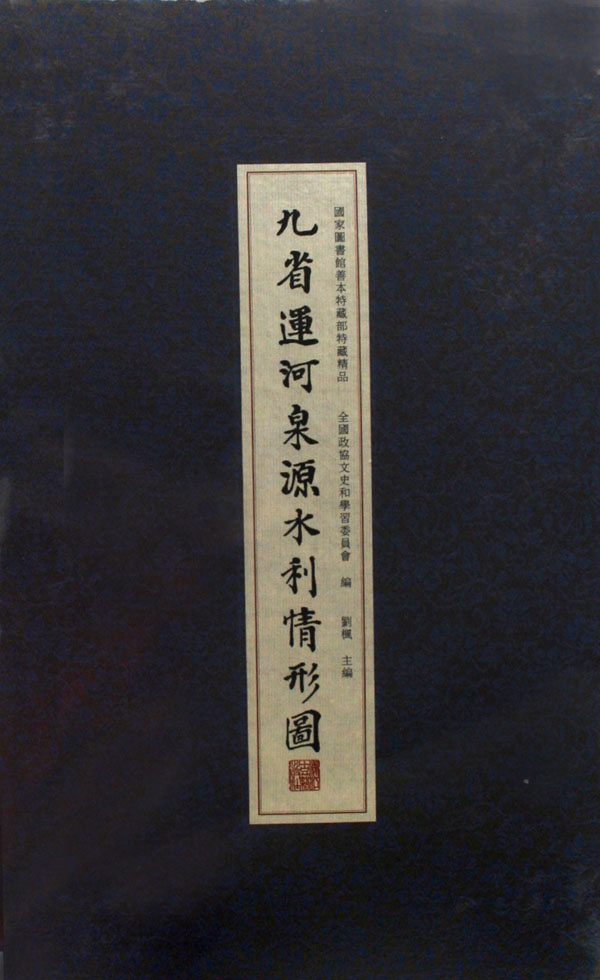 國家圖書館善本特藏部特藏精品 全國政協文史和學習委員會 編 劉楓 主編
九省運河泉源水利情形圖